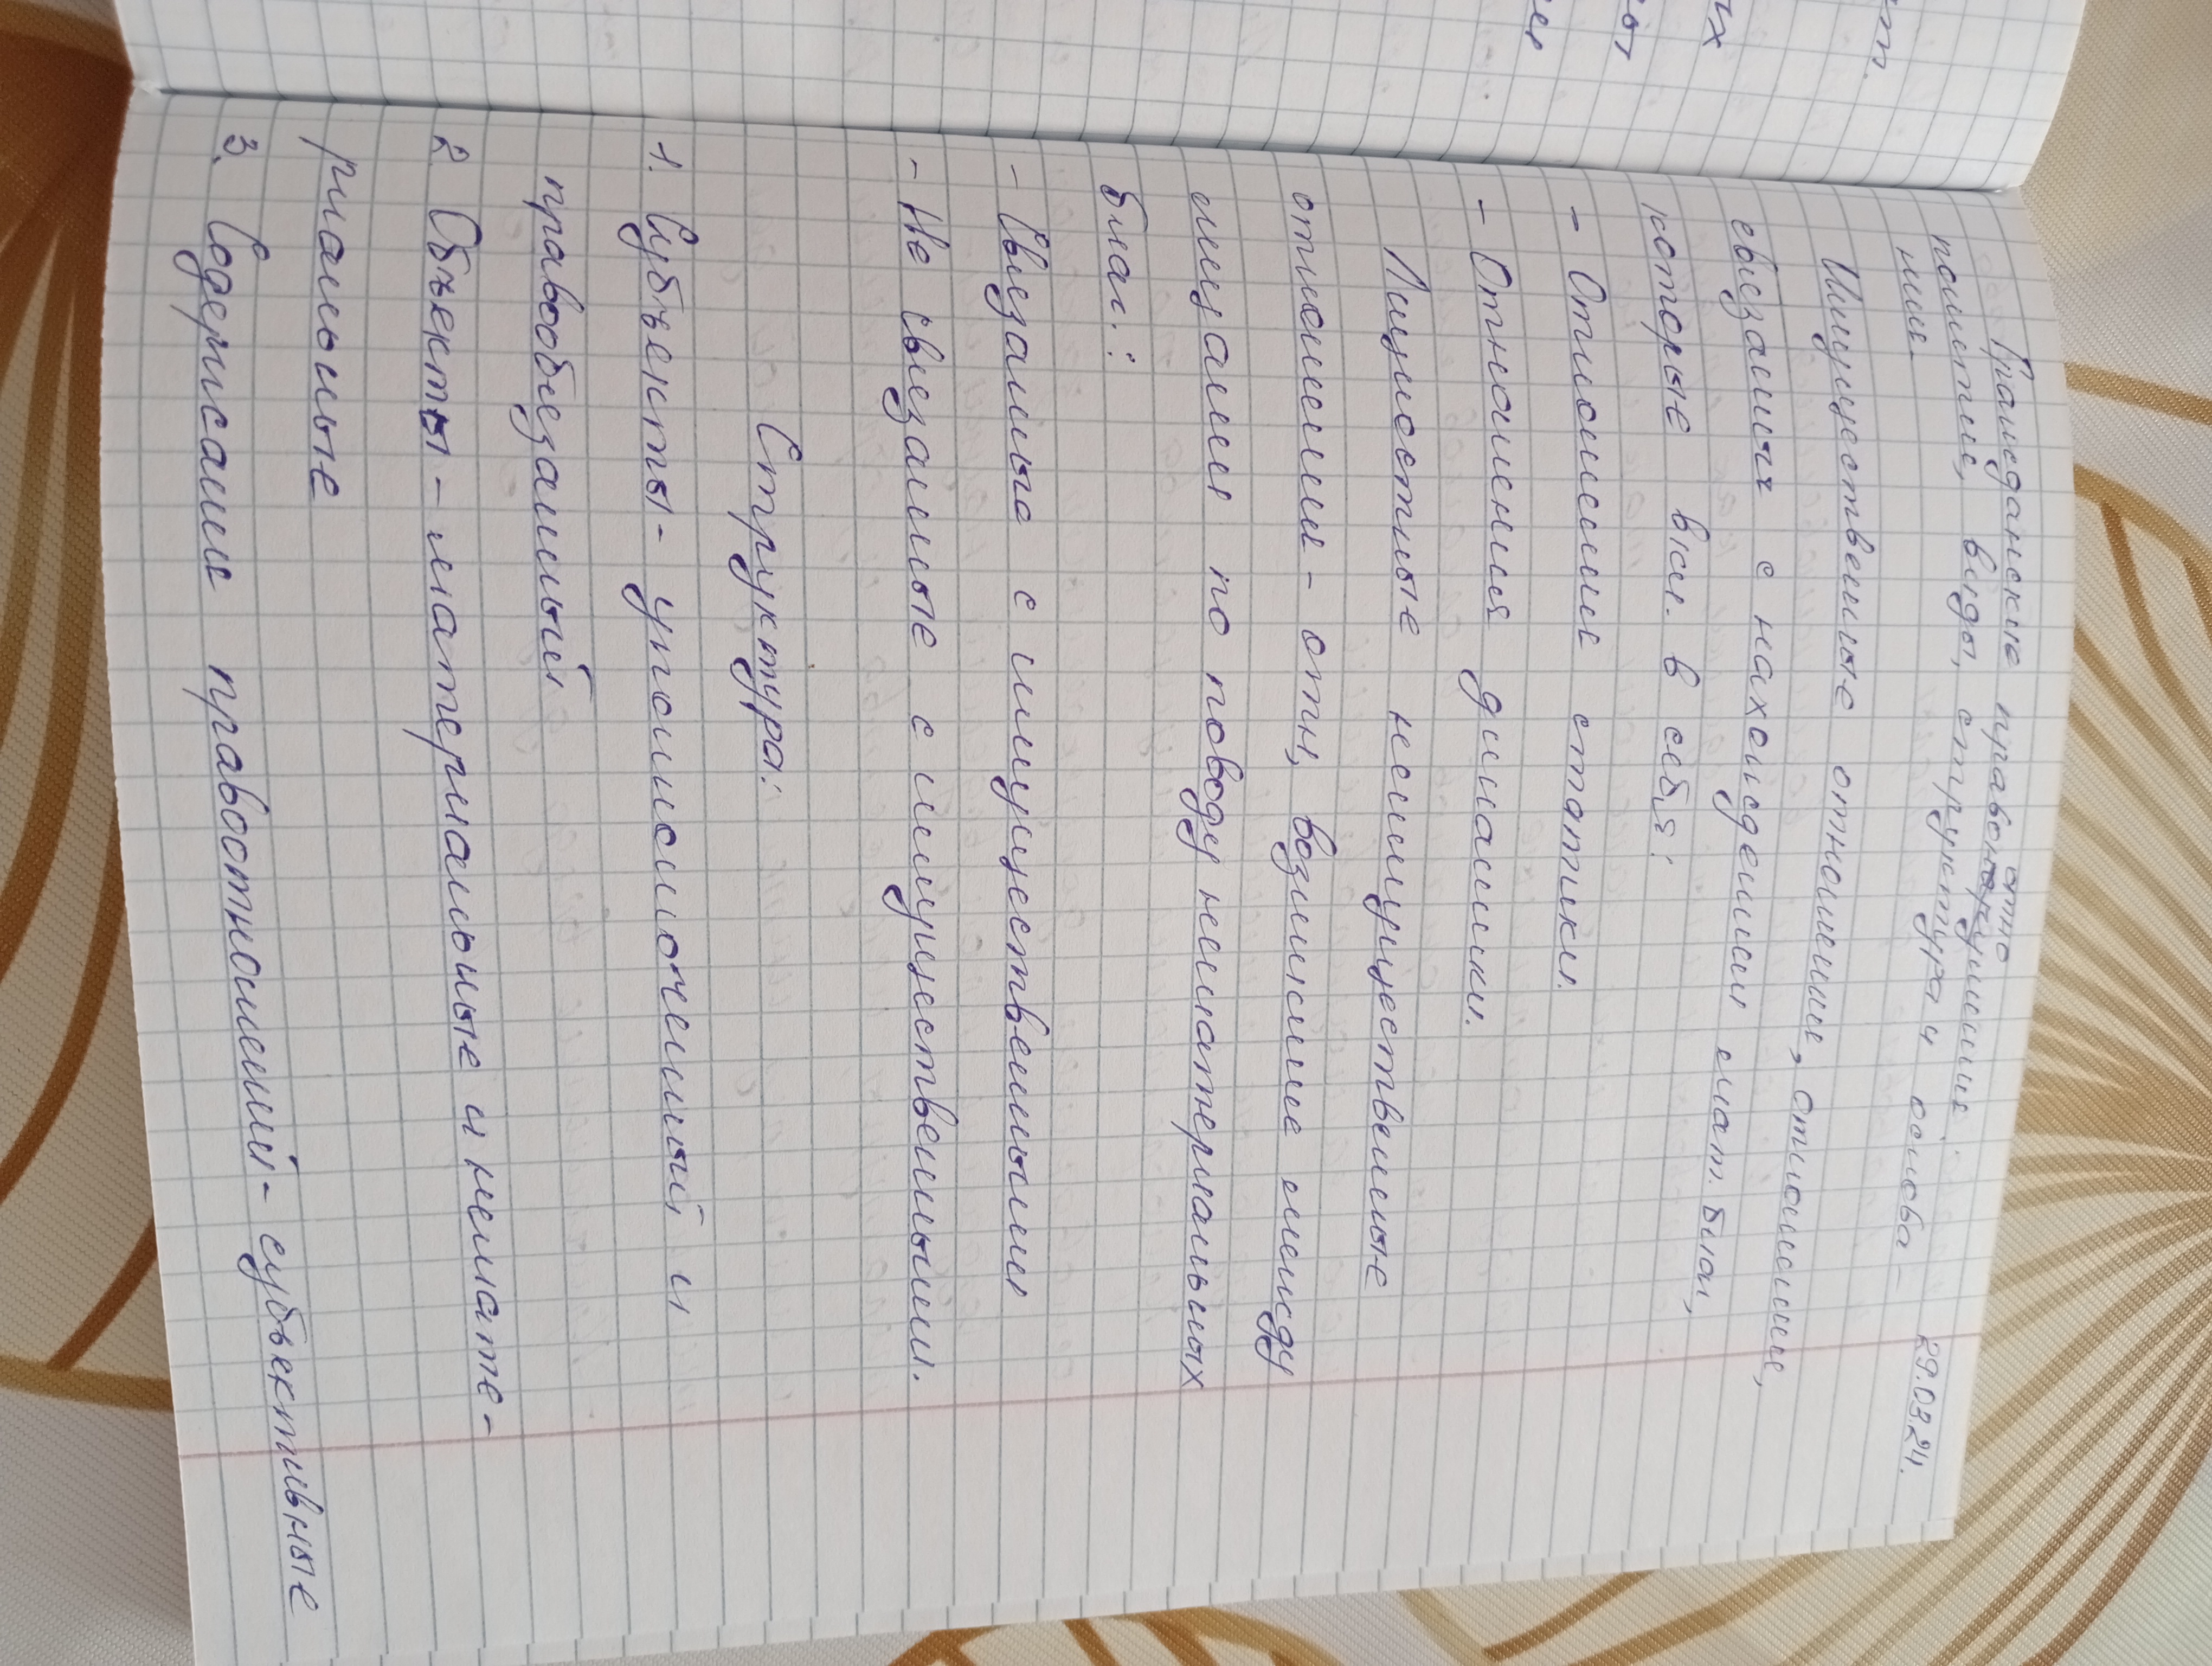 29.03.24.
Гражданские правоотношения:
понятие, виды, структура и основа-
ния.
Имущественные отношения, отношения,
связаных с нахождением мат. благ,
которые вкл. в себя:
- Отношения статики.
- Отношения динамики.
Личностные неимущественные
отношения - отн, возникшие между
лицами по поводу нематериальных
благ.:
- Связанные с имущественными
- Не связанные с имущественными.
Структура:
1. Субъекты - управомоченный и
правообязанный
2. Объекты - материальные и немате-
риальные
3. Содержание правоотношений - субъективные